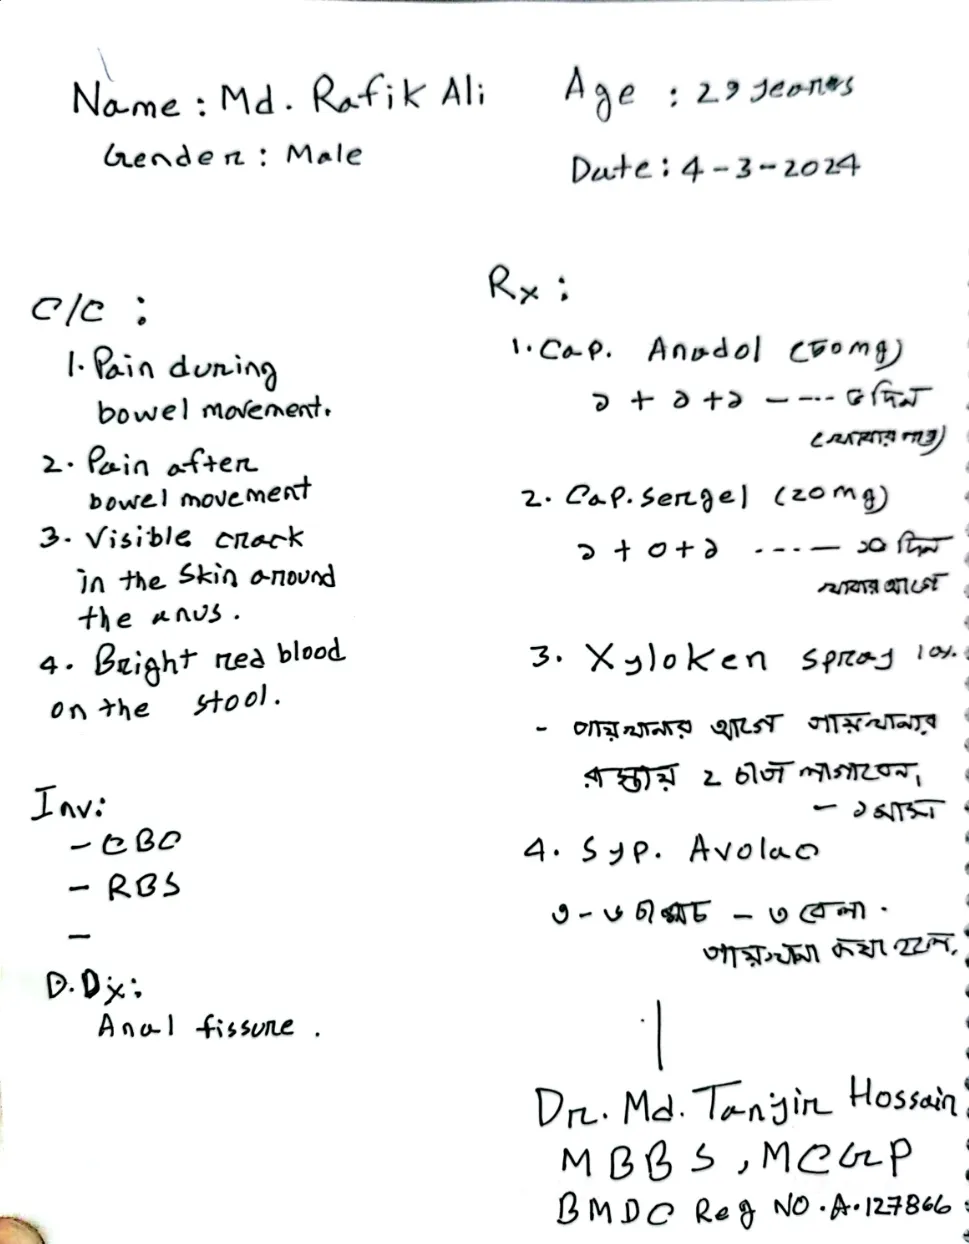 Name : Md. Rafik Ali
Age : 29 years
Gender : Male
Date : 4-3-2024
C/C :
1. Pain during
bowel movement.
2. Pain after
bowel movement
3. Visible crack
in the skin around
the anus.
4. Bright red blood
on the stool.
Inv:
- CBC
- RBS
-
D.Dx:
Anal fissure.
Rx :
1. Cap. Anadol (50mg)
১ + ১ + ১ ----- দিন
(খাবার পর)
2. Cap. Sergel (20mg)
১ + ০ + ১ ----- ১০ দিন
খাবার আগে
3. Xyloken spray 10%
- পায়খানার আগে পায়খানার
রাস্তায় ২ চাপ লাগাবেন,
- ১ মাস
4. Syp. Avolac
৩-৩ চামচ - ৩ বেলা.
পায়খানা কষা হলে.
Dr. Md. Tanjir Hossain
MBBS, MCGP
BMDC Reg NO. A. 127866